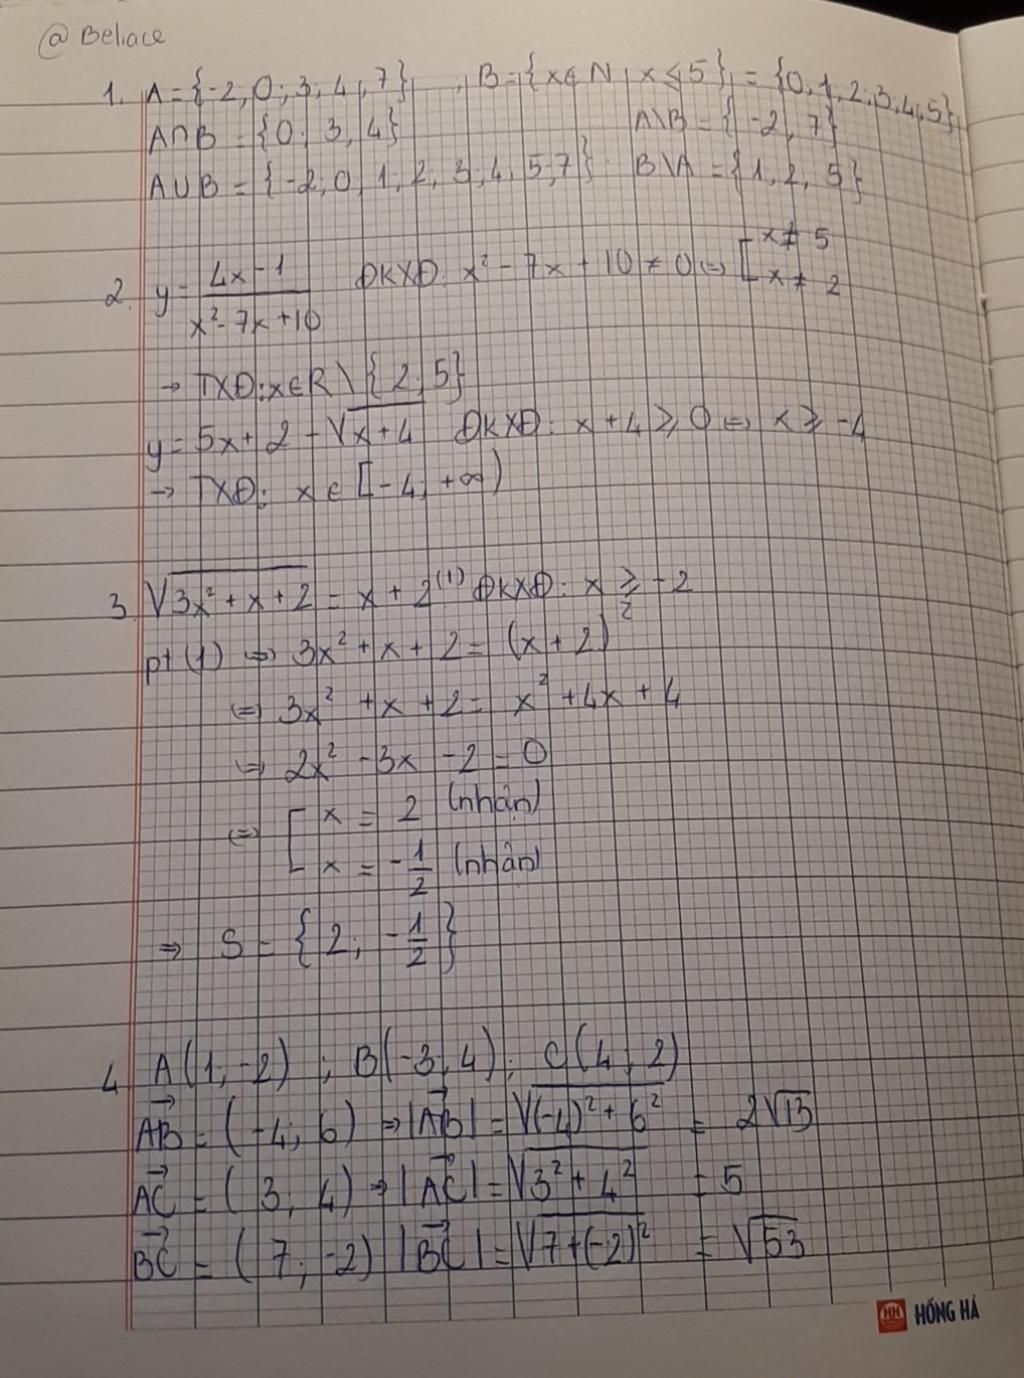 @ Beliace
1. A = {-2; 0; 3; 4; 7} ; B = {x ∈ N | x ≤ 5} = {0; 1; 2; 3; 4; 5}
A∩B = {0; 3; 4} A\B = {-2; 7}
A∪B = {-2; 0; 1; 2; 3; 4; 5; 7} B\A = {1; 2; 5}
2. y = (4x - 1)/(x² - 7x + 10) ĐKXĐ: x² - 7x + 10 ≠ 0 ⇔ [ x ≠ 5
x ≠ 2
→ TXĐ: x ∈ R \ {2; 5}
y = 5x + 2 - √(x + 4) ĐKXĐ: x + 4 ≥ 0 ⇔ x ≥ -4
→ TXĐ: x ∈ [-4; +∞)
3. √(3x² + x + 2) = x + 2 (1) ĐKXĐ: x ≥ -2
pt (1) ⇔ 3x² + x + 2 = (x + 2)²
⇔ 3x² + x + 2 = x² + 4x + 4
⇔ 2x² - 3x - 2 = 0
⇔ [ x = 2 (nhận)
x = -1/2 (nhận)
⇒ S = {2; -1/2}
4. A(1; -2) ; B(-3; 4) ; C(4; 2)
AB→ = (-4; 6) ⇒ |AB→| = √((-4)² + 6²) = 2√13
AC→ = (3; 4) ⇒ |AC→| = √(3² + 4²) = 5
BC→ = (7; -2) |BC→| = √(7 + (-2)²) = √53
HH HỒNG HÀ